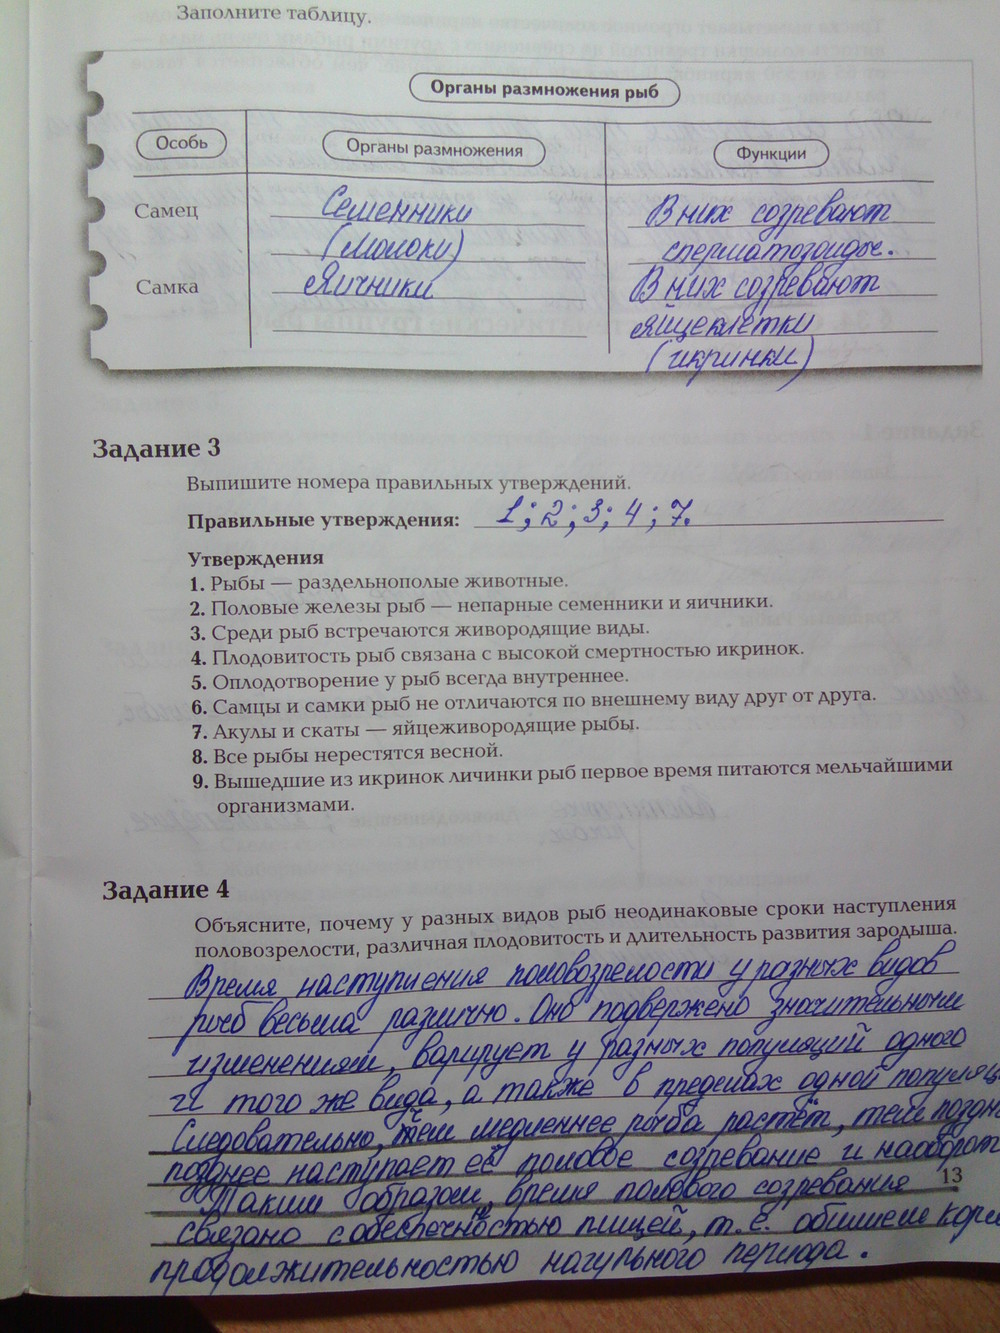 Заполните таблицу.
Органы размножения рыб
Особь Органы размножения Функции
Самец Семенники В них созревают
(молоки) сперматозоиды.
Самка Яичники В них созревают
яйцеклетки
(икринки)
Задание 3
Выпишите номера правильных утверждений.
Правильные утверждения: 1; 2; 3; 4; 7.
Утверждения
1. Рыбы — раздельнополые животные.
2. Половые железы рыб — непарные семенники и яичники.
3. Среди рыб встречаются живородящие виды.
4. Плодовитость рыб связана с высокой смертностью икринок.
5. Оплодотворение у рыб всегда внутреннее.
6. Самцы и самки рыб не отличаются по внешнему виду друг от друга.
7. Акулы и скаты — яйцеживородящие рыбы.
8. Все рыбы нерестятся весной.
9. Вышедшие из икринок личинки рыб первое время питаются мельчайшими
организмами.
Задание 4
Объясните, почему у разных видов рыб неодинаковые сроки наступления
половозрелости, различная плодовитость и длительность развития зародыша.
Время наступления половозрелости у разных видов
рыб весьма различно. Оно подвержено значительным
изменениям, варьирует у разных популяций одного
и того же вида, а также в пределах одной популяц
Следовательно, чем медленнее рыба растёт, тем
позднее наступает её половое созревание и наоборот
Таким образом, время полового созревания 13
связано с обеспеченностью пищей, т. е. обилием корм
продолжительностью нагульного периода.